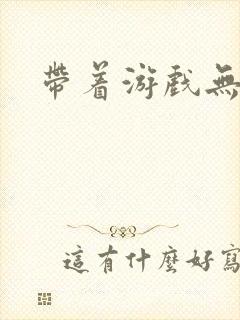 帶着游戲無
這有什麼好寫